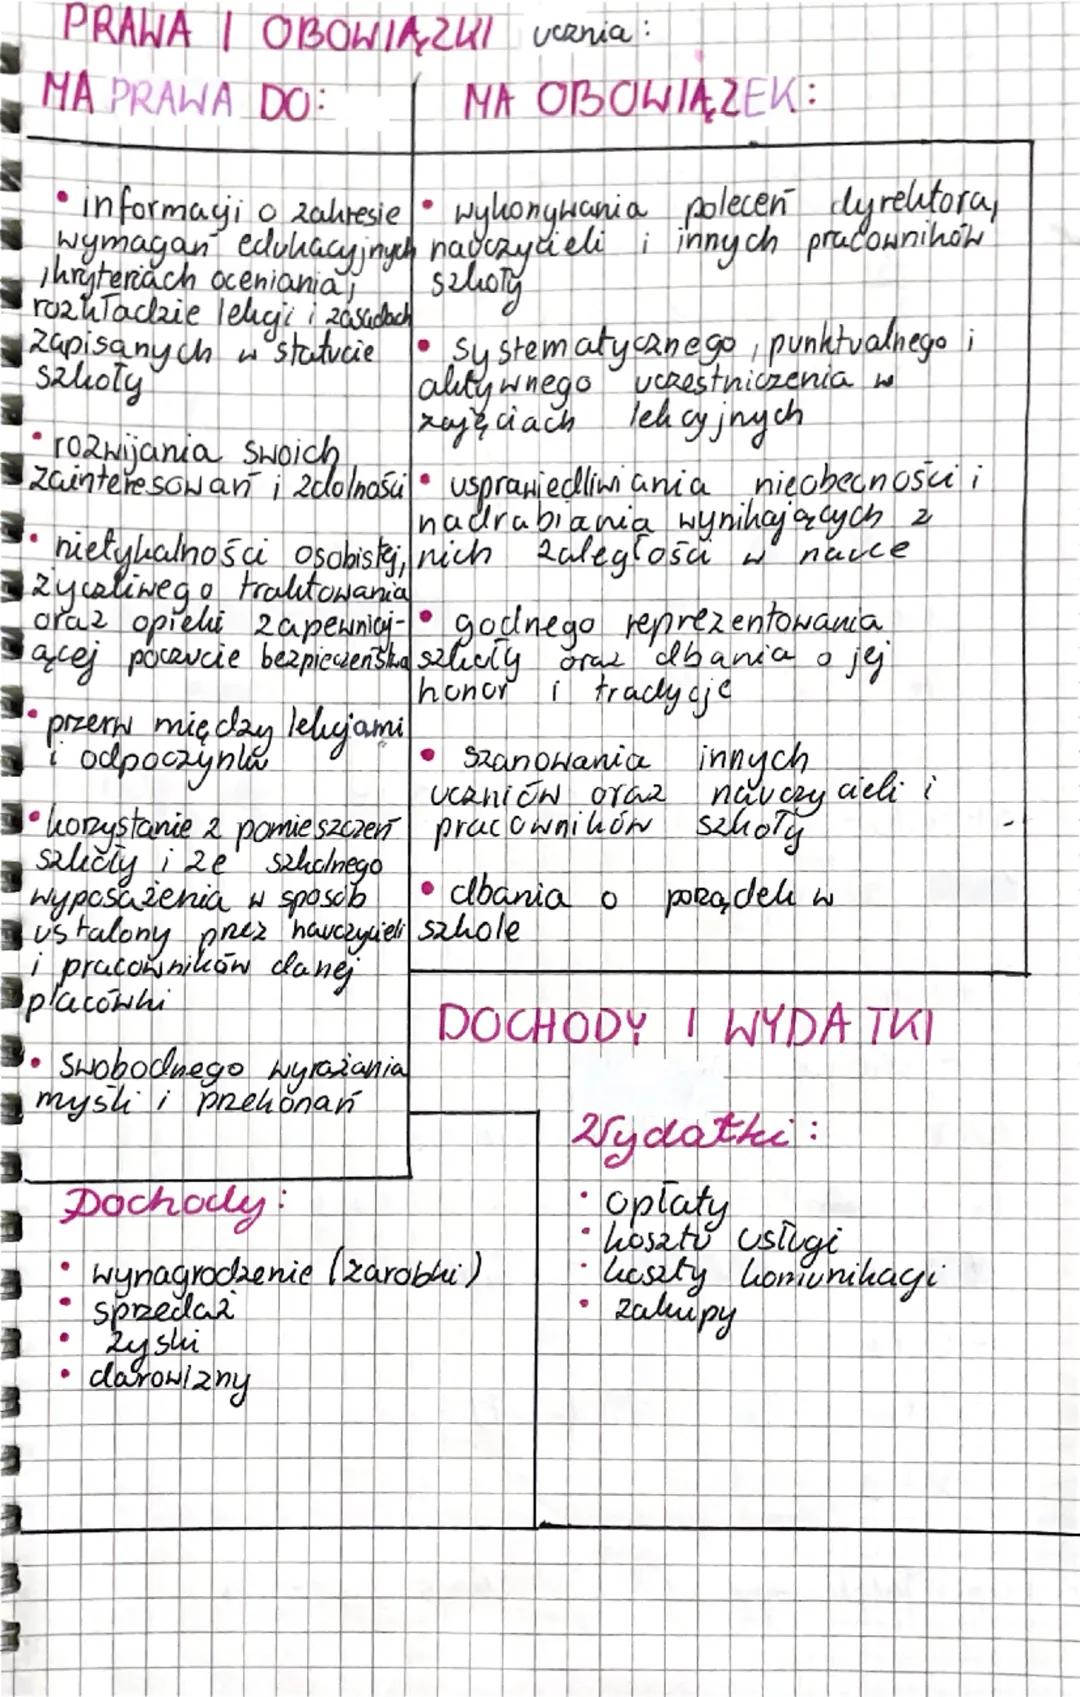 PRAWA I OBOWIĄZKI ucznia:
MA PRAWA DO:
• informacji o zakresie
wymagań edukacyjnych
, kryteriach oceniania,
rozkładzie lekcji i zasadach
zapisanych w statucie
szkoły
• rozwijania swoich
zainteresowań i zdolności
• nietykalności osobistej,
życzliwego traktowania
oraz opieki zapewniaj-
ącej poczucie bezpieczeństwa
• przerw między lekcjami
i odpoczynku
• korzystanie z pomieszczeń
szkoły i ze szkolnego
wyposażenia w sposób
ustalony przez nauczycieli
i pracowników danej
placówki
• swobodnego wyrażania
myśli i przekonań
MA OBOWIĄZEK:
• wykonywania poleceń dyrektora,
nauczycieli i innych pracowników
szkoły
• systematycznego, punktualnego i
aktywnego uczestniczenia w
zajęciach lekcyjnych
• usprawiedliwiania nieobecności i
nadrabiania wynikających z
nich zaległości w nauce
• godnego reprezentowania
szkoły oraz dbania o jej
honor i tradycje
• szanowania innych
uczniów oraz nauczycieli i
pracowników szkoły
• dbania o porządek w
szkole
DOCHODY I WYDATKI
Dochody:
• wynagrodzenie (zarobki)
• sprzedaż
• zyski
• darowizny
Wydatki:
• opłaty
• kosztu usługi
• koszty komunikacji
• zakupy